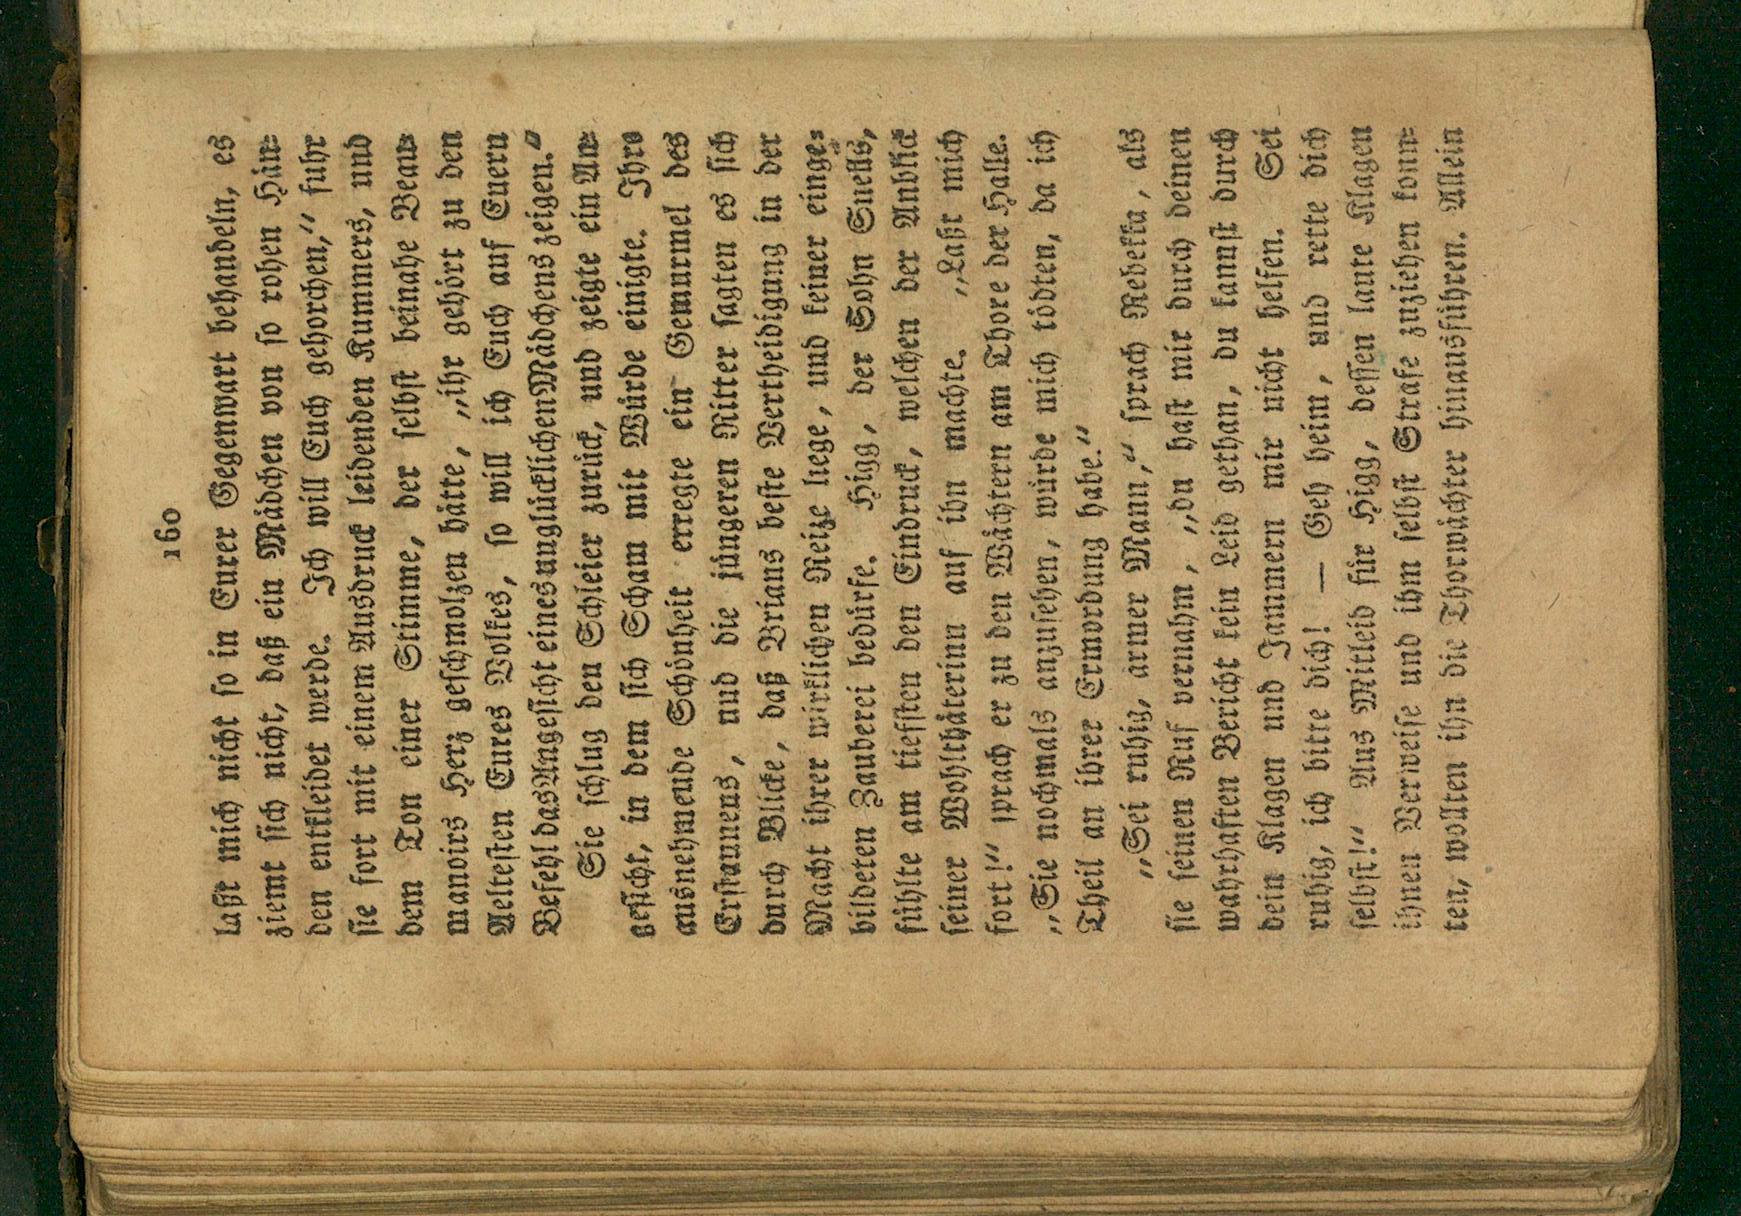 160
laßt mich nicht so in Eurer Gegenwart behandeln, es
ziemt sich nicht, daß ein Mådchen von so rohen Hän-
den entkleidet werde. Ich will Euch gehorchen,“ fuhr
sie fort mit einem Ausdruck leidenden Kummers, und
dem Ton einer Stimme, der selbst beinahe Beau-
manoirs Herz geschmolzen håtte, „ihr gehört zu den
Aeltesten Eures Volkes, so will ich Euch auf Euern
Befehl das Angesicht eines unglücklichen Mädchens zeigen.“
Sie schlug den Schleier zurück, und zeigte ein An-
gesicht, in dem sich Scham mit Würde einigte. Ihre
ausnehmende Schönheit erregte ein Gemurmel des
Erstaunens, und die jüngeren Ritter sagten es sich
durch Blicke, daß Brians beste Vertheidigung in der
Macht ihrer wirklichen Reitze liege, und keiner einge-
bildeten Zauberei bedürfe. Higg, der Sohn Snells,
fühlte am tiefsten den Eindruck, welchen der Anblick
seiner Wohlthåterinn auf ihn machte. „Laßt mich
fort!“ sprach er zu den Wåchtern am Thore der Halle.
„Sie nochmals anzusehen, würde mich tödten, da ich
Theil an ihrer Ermordung habe.“
„Sei ruhig, armer Mann,“ sprach Rebekka, als
sie seinen Ruf vernahm, „du hast mir durch deinen
wahrhaften Bericht kein Leid gethan, du kannst durch
dein Klagen und Jammern mir nicht helfen. Sei
ruhig, ich bitte dich! — Geh heim, und rette dich
selbst!“ Aus Mitleid für Higg, dessen laute Klagen
ihnen Verweise und ihm selbst Strafe zuziehen konn-
ten, wollten ihn die Thorwåchter hinausführen. Allein